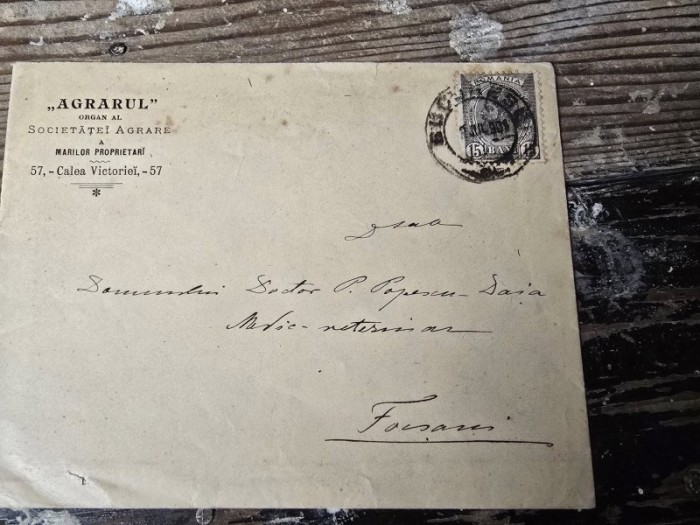 „AGRARUL"
ORGAN AL
SOCIETĂȚEĬ AGRARE
A
MARILOR PROPRIETARĬ
57, - Calea Victorieĭ, - 57
ROMANIA
BUCURESCI
15 BANI 15
Dsale
Domnului Doctor P. Popescu-Daia
Medic-veterinar
Focsani